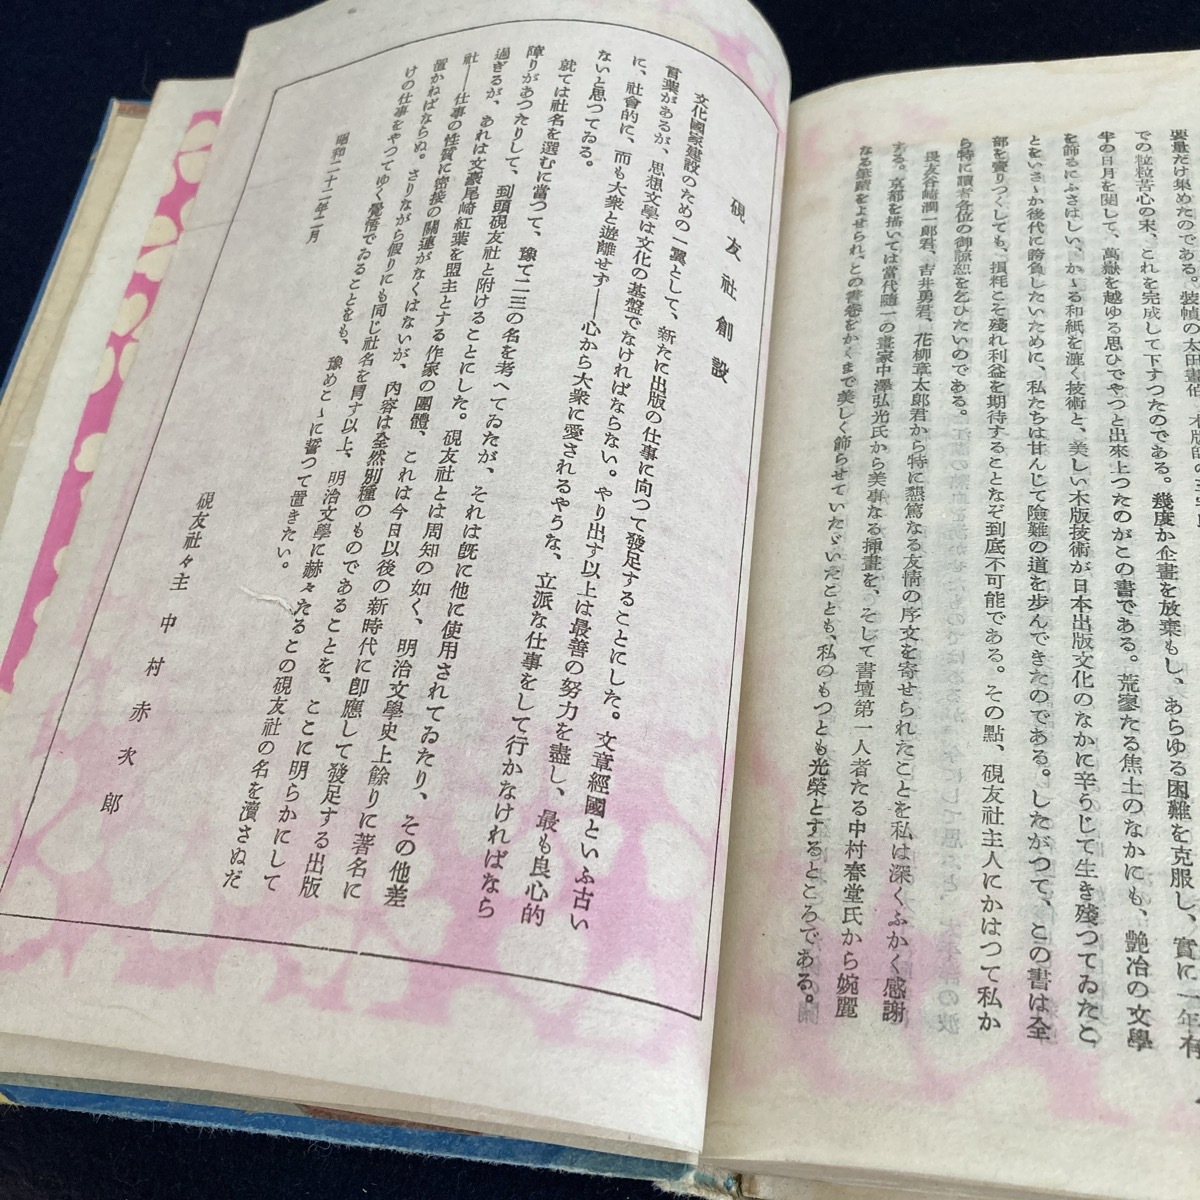 要量だけ集めたのである。装幀の太田畫伯、木版師の
での粒粒苦心の末、これを完成して下すつたのである。幾度か企畫を放棄もし、あらゆる困難を克服し、實に一年有
半の日月を閲して、萬嶽を越ゆる思ひでやつと出來上つたのがこの書である。荒寥たる焦土のなかにも、艶冶の文學
を飾るにふさはしい、かゝる和紙を漉く技術と、美しい木版技術が日本出版文化のなかに辛うじて生き殘つてゐたこ
とをいさゝか後代に誇負したいために、私たちは甘んじて險難の道を歩んできたのである。したがつて、この書は全
部を賣りつくしても、損耗こそ殘れ利益を期待することなぞ到底不可能である。その點、硯友社主人にかはつて私か
ら特に讀者各位の御諒恕を乞ひたいのである。
畏友谷崎潤一郎君、吉井勇君、花柳章太郎君から特に懇篤なる友情の序文を寄せられたことを私は深くふかく感謝
する。京都を描いては當代隨一の畫家中澤弘光氏から美事なる挿畫を、そして書壇第一人者たる中村春堂氏から婉麗
なる筆蹟をよせられ、この書卷をかくまで美しく飾らせていたゞいたことも、私のもつとも光榮とするところである。
硯友社創設
文化國家建設のための一翼として、新たに出版の仕事に向つて發足することにした。文章經國といふ古い
言葉があるが、思想文學は文化の基盤でなければならない。やり出す以上は最善の努力を盡し、最も良心的
に、社會的に、而も大衆と遊離せず――心から大衆に愛されるやうな、立派な仕事をして行かなければなら
ないと思つてゐる。
就ては社名を選むに當つて、豫て二三の名を考へてゐたが、それは既に他に使用されてゐたり、その他差
障りがあつたりして、到頭硯友社と附けることにした。硯友社とは周知の如く、明治文學史上餘りに著名に
過ぎるが、あれは文豪尾崎紅葉を盟主とする作家の團體、これは今日以後の新時代に卽應して發足する出版
社――仕事の性質に密接の關連がなくはないが、内容は全然別種のものであることを、ここに明らかにして
置かねばならぬ。さりながら假りにも同じ社名を冐す以上、明治文學に赫々たるこの硯友社の名を瀆さぬだ
けの仕事をやつてゆく覺悟でゐることをも、豫めこゝに誓つて置きたい。
昭和二十二年二月
硯友社々主 中村赤次郎